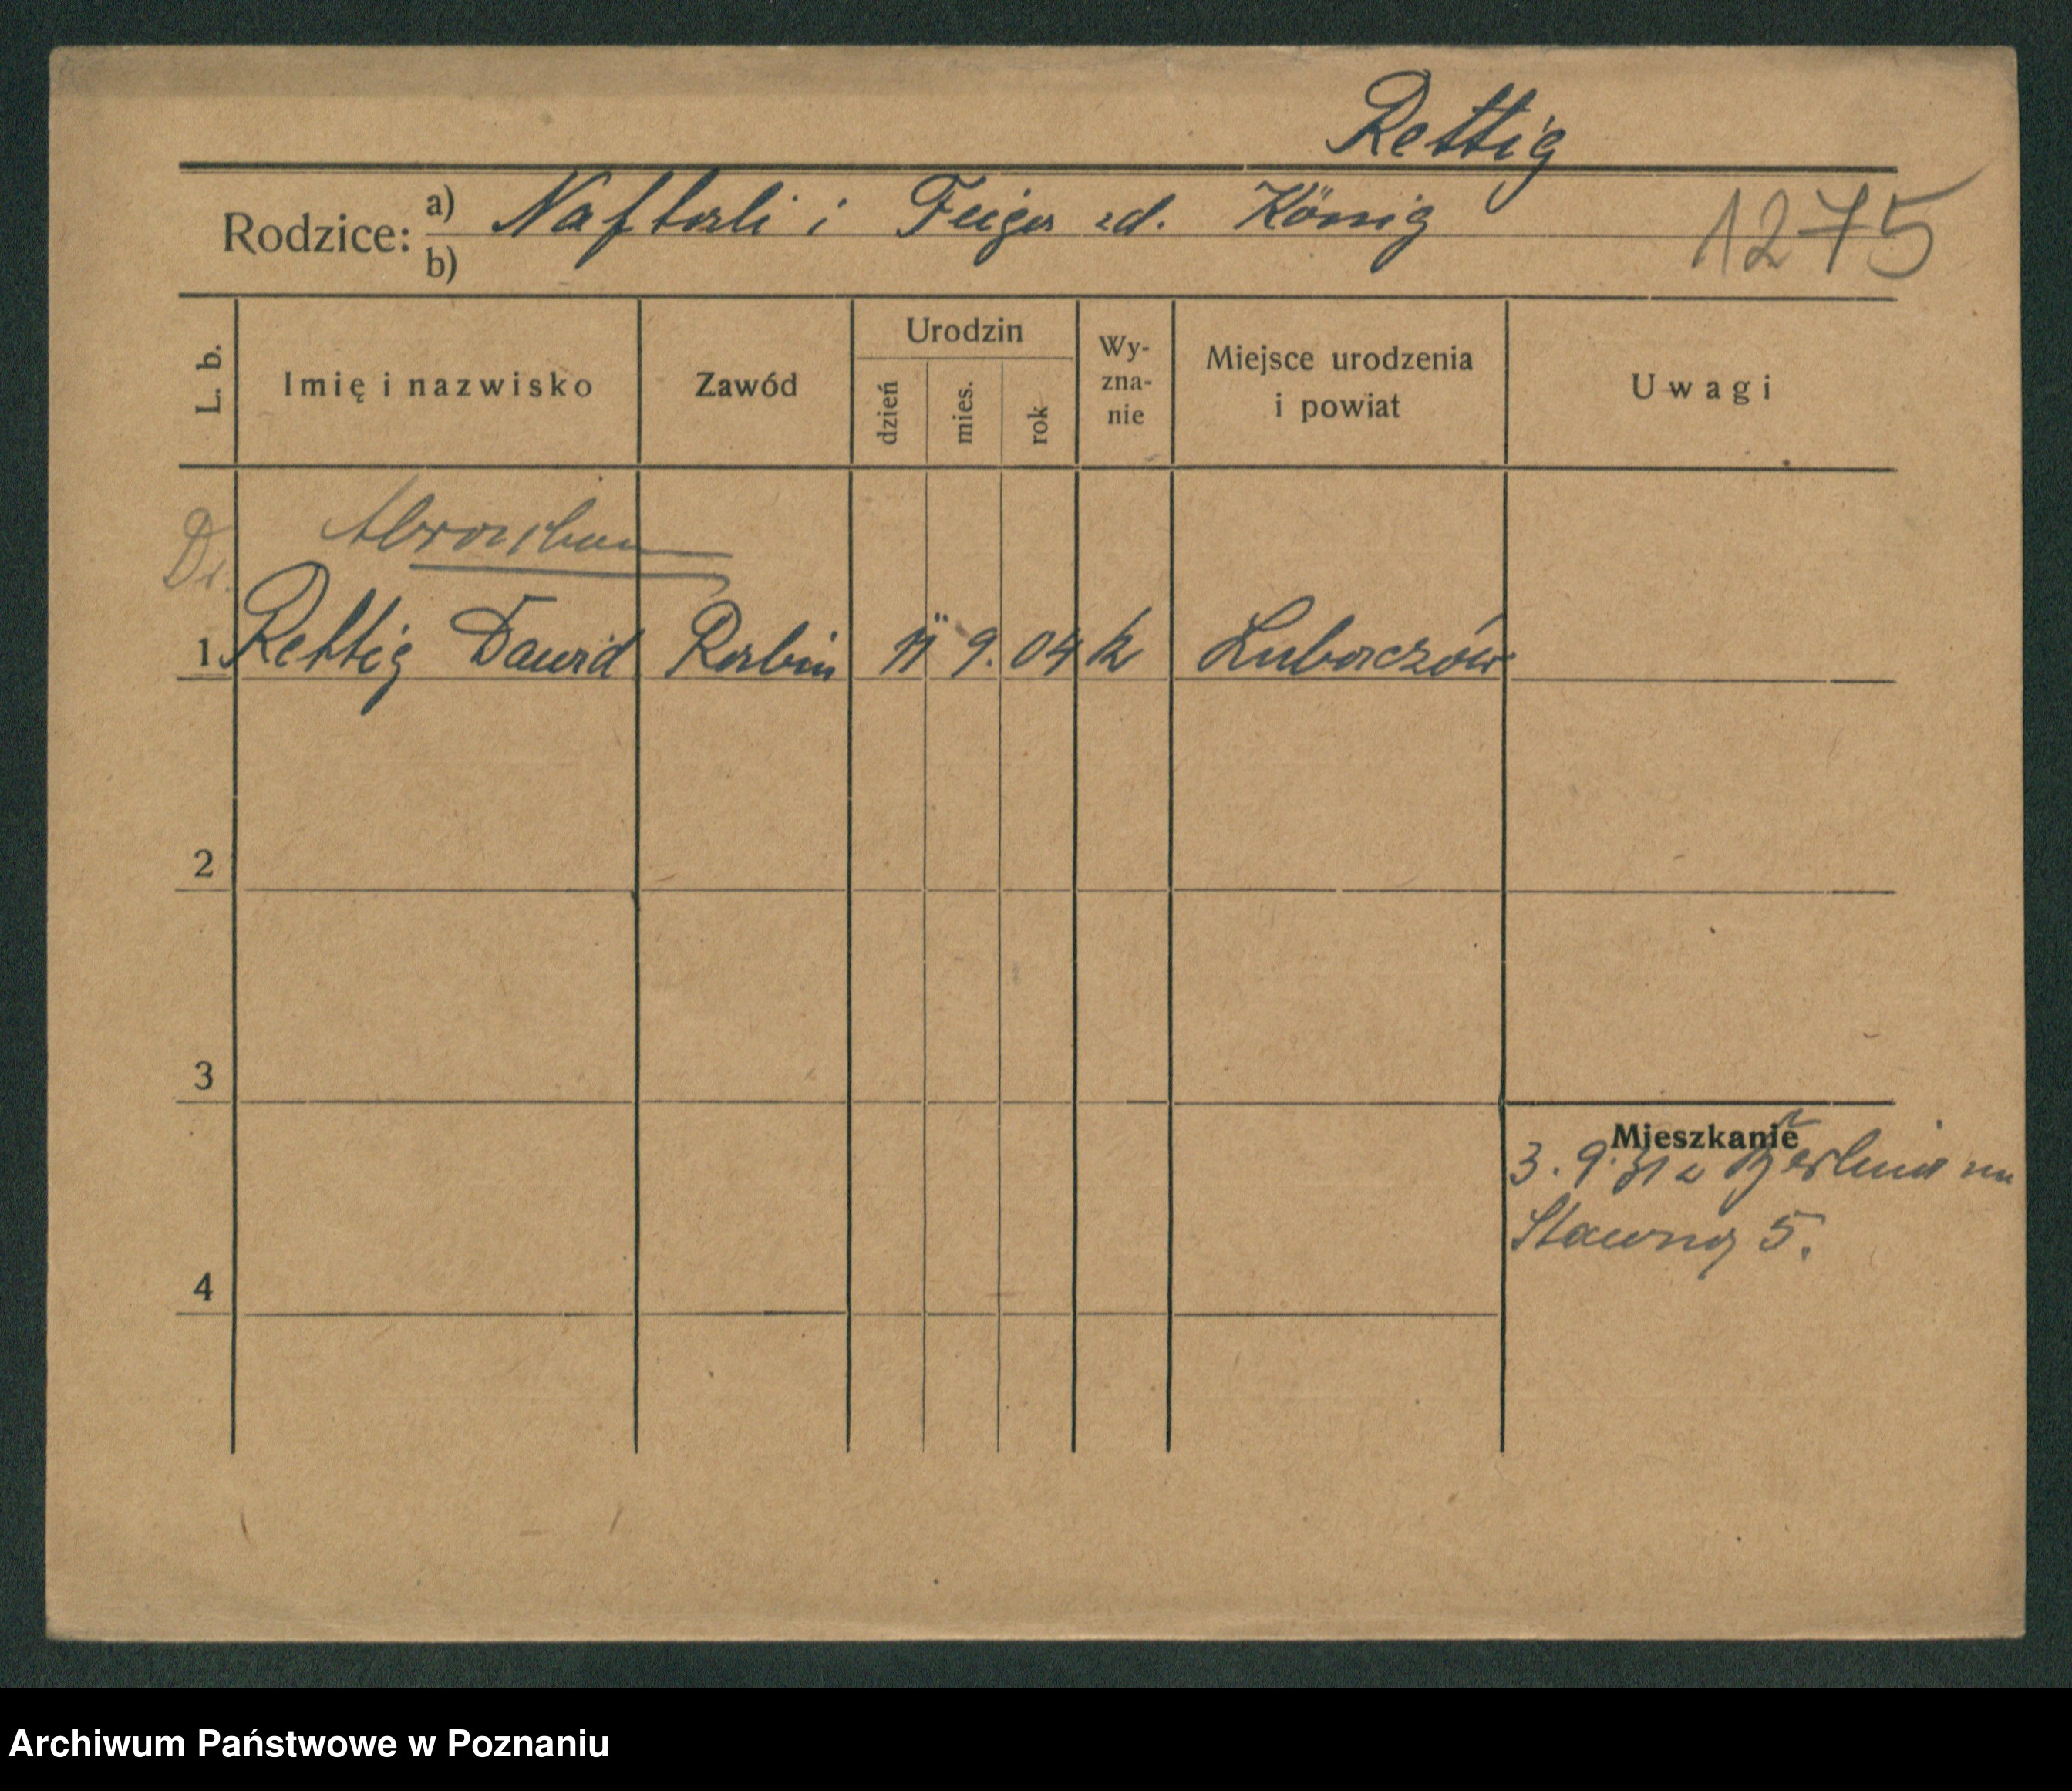 Rettig
Rodzice: a) Naftali i Feiga zd. König 1275
b)
L. b. Imię i nazwisko Zawód Urodzin dzień mies. rok Wy-zna-nie Miejsce urodzenia i powiat Uwagi
Dr. Abraham
1 Rettig Dawid Rabin 11 9. 04 Lubaczów
2
3
Mieszkanie
3. 9. 31 z Berlina na
Stawna 5.
4
Archiwum Państwowe w Poznaniu